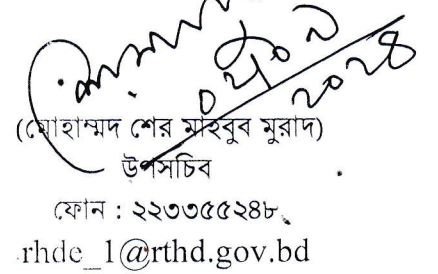 (মোহাম্মদ শের মাহবুব মুরাদ)
উপসচিব
ফোন : ২২৩৩৫৫২৪৮
rhde_1@rthd.gov.bd